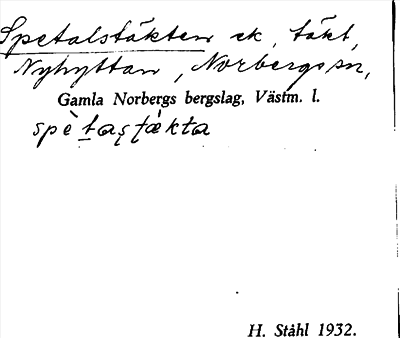 Spetalstäkten ek, täkt,
Nyhyttan, Norbergs sn,
Gamla Norbergs bergslag, Västm. l.
H. Ståhl 1932.